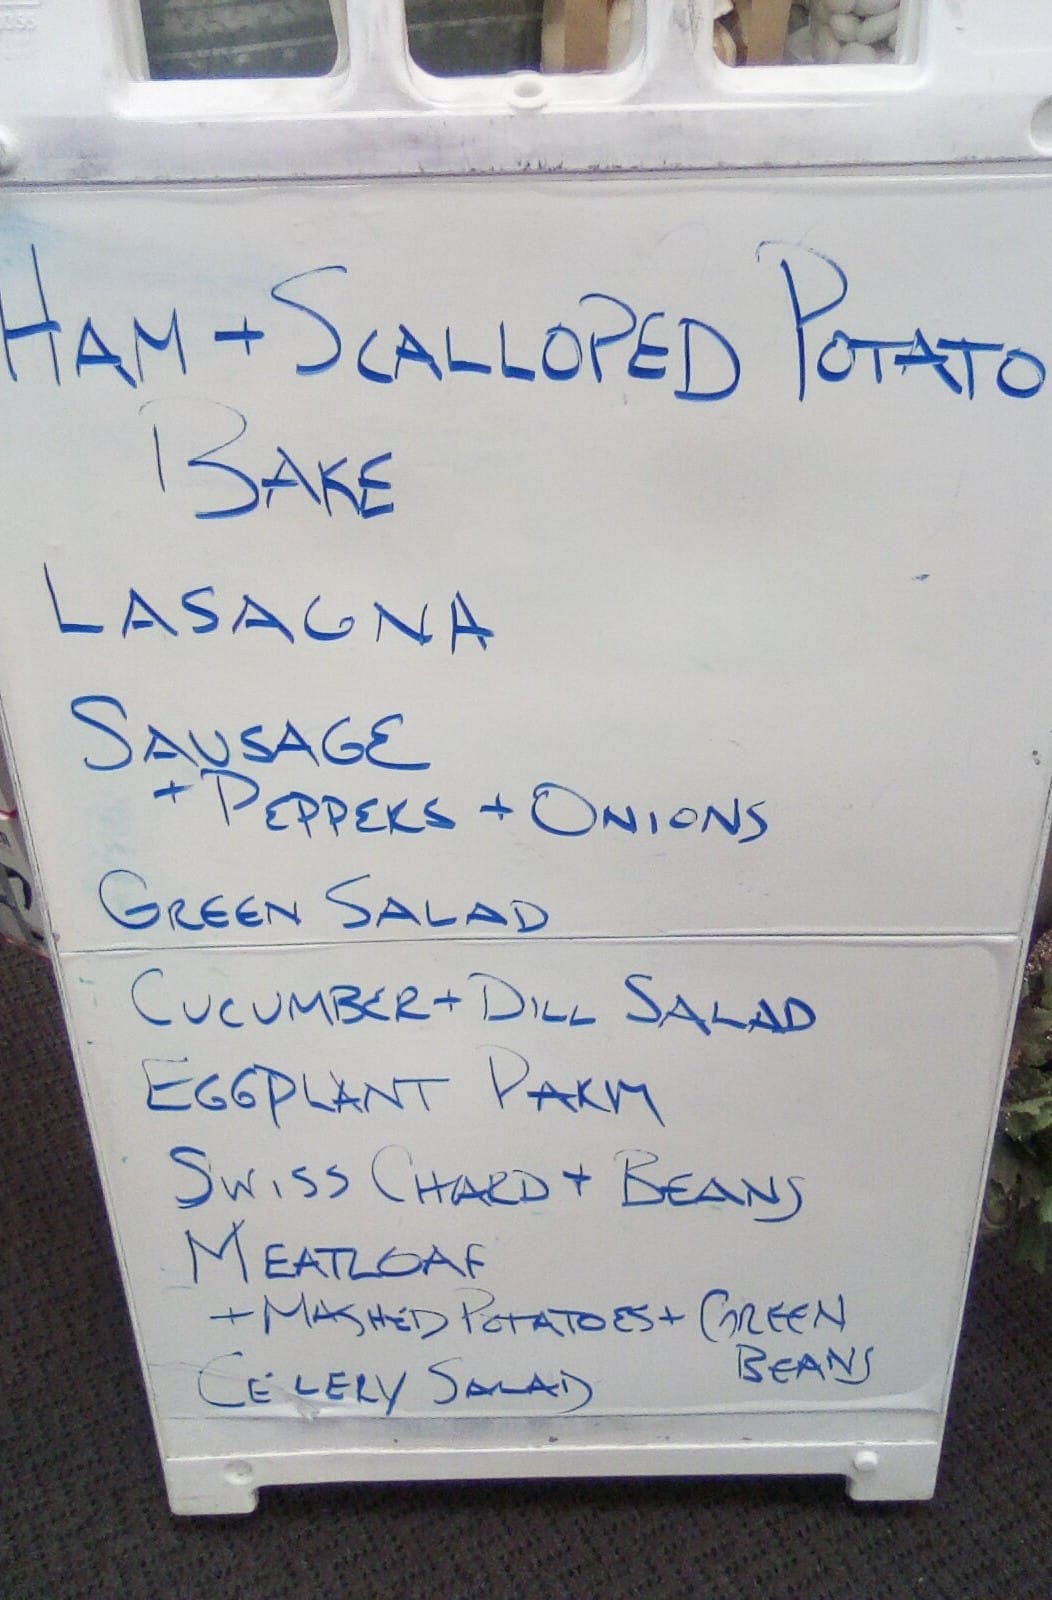 HAM + SCALLOPED POTATO
BAKE
LASAGNA
SAUSAGE
+ PEPPERS + ONIONS
GREEN SALAD
CUCUMBER + DILL SALAD
EGGPLANT PARM
SWISS CHARD + BEANS
MEATLOAF
+ MASHED POTATOES + GREEN
BEANS
CELERY SALAD